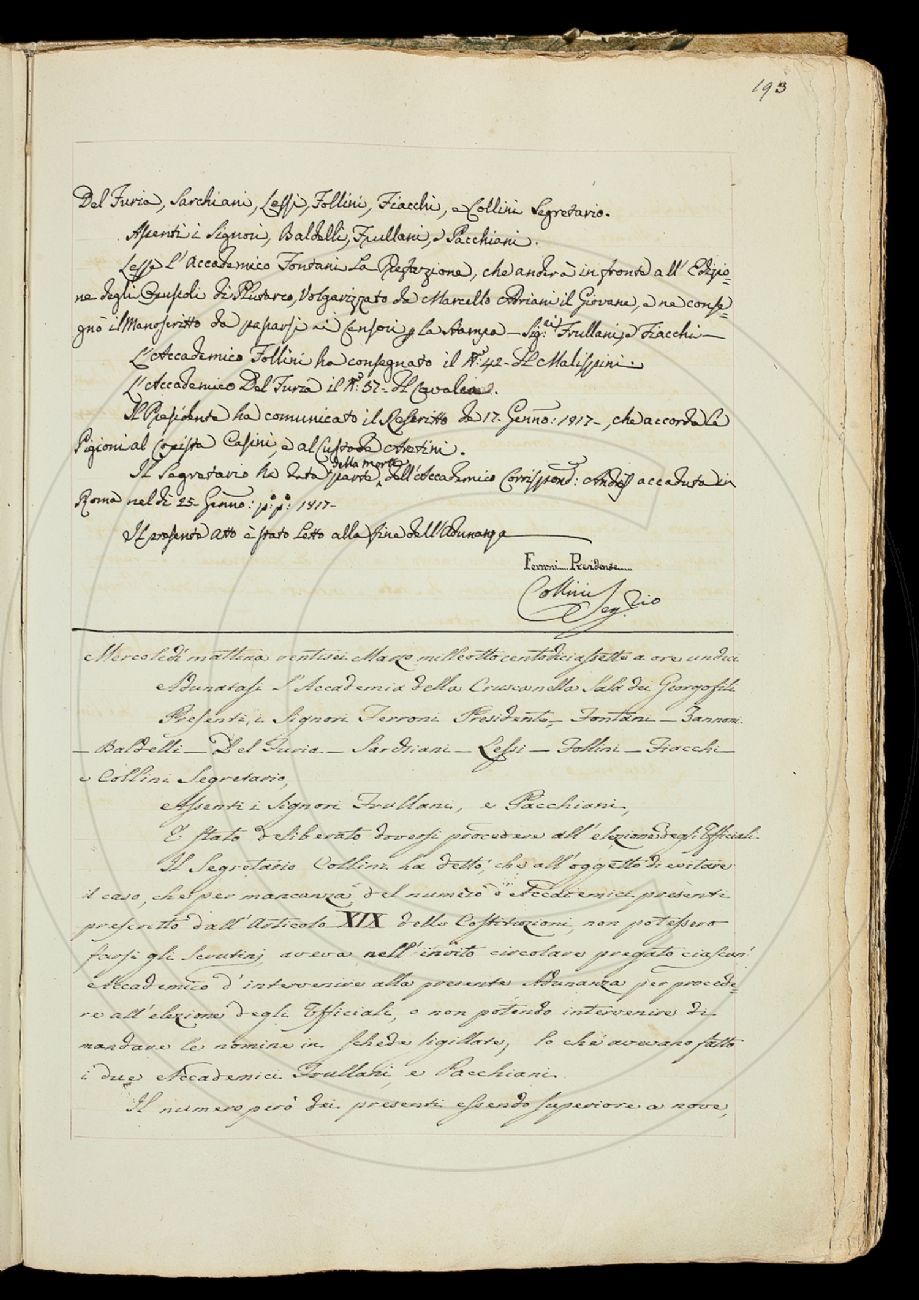 193
Del Furia, Sarchiani, Lessi, Follini, Fiacchi, e Collini Segretario.
Assenti i Signori, Baldelli, Frullani, e Pacchiani.
Lesse l'Accademico Fontani La Prefazione, che anderà in fronte all'Edizio=
ne degli Opuscoli di Plutarco, Volgarizzato da Marcello Adriani il Giovane, e ne conse=
gnò il Manoscritto da passarsi ai Censori p la Stampa — Sig.ri Frullani, e Fiacchi —
L'Accademico Follini ha consegnato il N.º 42 - Il Malispini.
L'Accademico Del Furia il N.º 57 - Il Cavalca.
Il Presidente ha comunicato il Rescritto de 17. Genn: 1817 -, che accorda la
Pigioni al Copista Casini, e al Custode Aretini.
Il Segretario ha data parte della morte dell'Accademico Corrispond: Andres accaduta in
Roma nel dì 25 Genn: p:º p:º 1817 -
Il presente Atto è stato Letto alla fine dell'Adunanza
Ferroni Presidente
Collini Seg.rio
Mercoledì mattina ventisei Marzo mille ottocentodiciassette a ore undici
Adunatasi l'Accademia della Crusca nella Sala dei Georgofili
Presenti, i Signori Ferroni Presidente, — Fontani — Zannoni
— Baldelli — Del Furia — Sarchiani — Lessi — Follini — Fiacchi —
e Collini Segretario,
Assenti i Signori Frullani, e Pacchiani,
E' stato deliberato doversi procedere all'elezione degli Officiali.
Il Segretario Collini ha detto, che all'oggetto di evitare
il caso, che per mancanza, del numero d'Accademici presenti
prescritto dall'Articolo XIX della Costituzioni, non potessero
farsi gli Scrutinj aveva nell'invito circolare pregato ciascun'
Accademico d'intervenire alla presente Adunanza per procede=
re all'elezione degli Officiali, o non potendo intervenire di
mandare le nomine in schede sigillate; lo che avevano fatto
i due Accademici Frullani, e Pacchiani.
Il numero però dei presenti essendo superiore a nove,